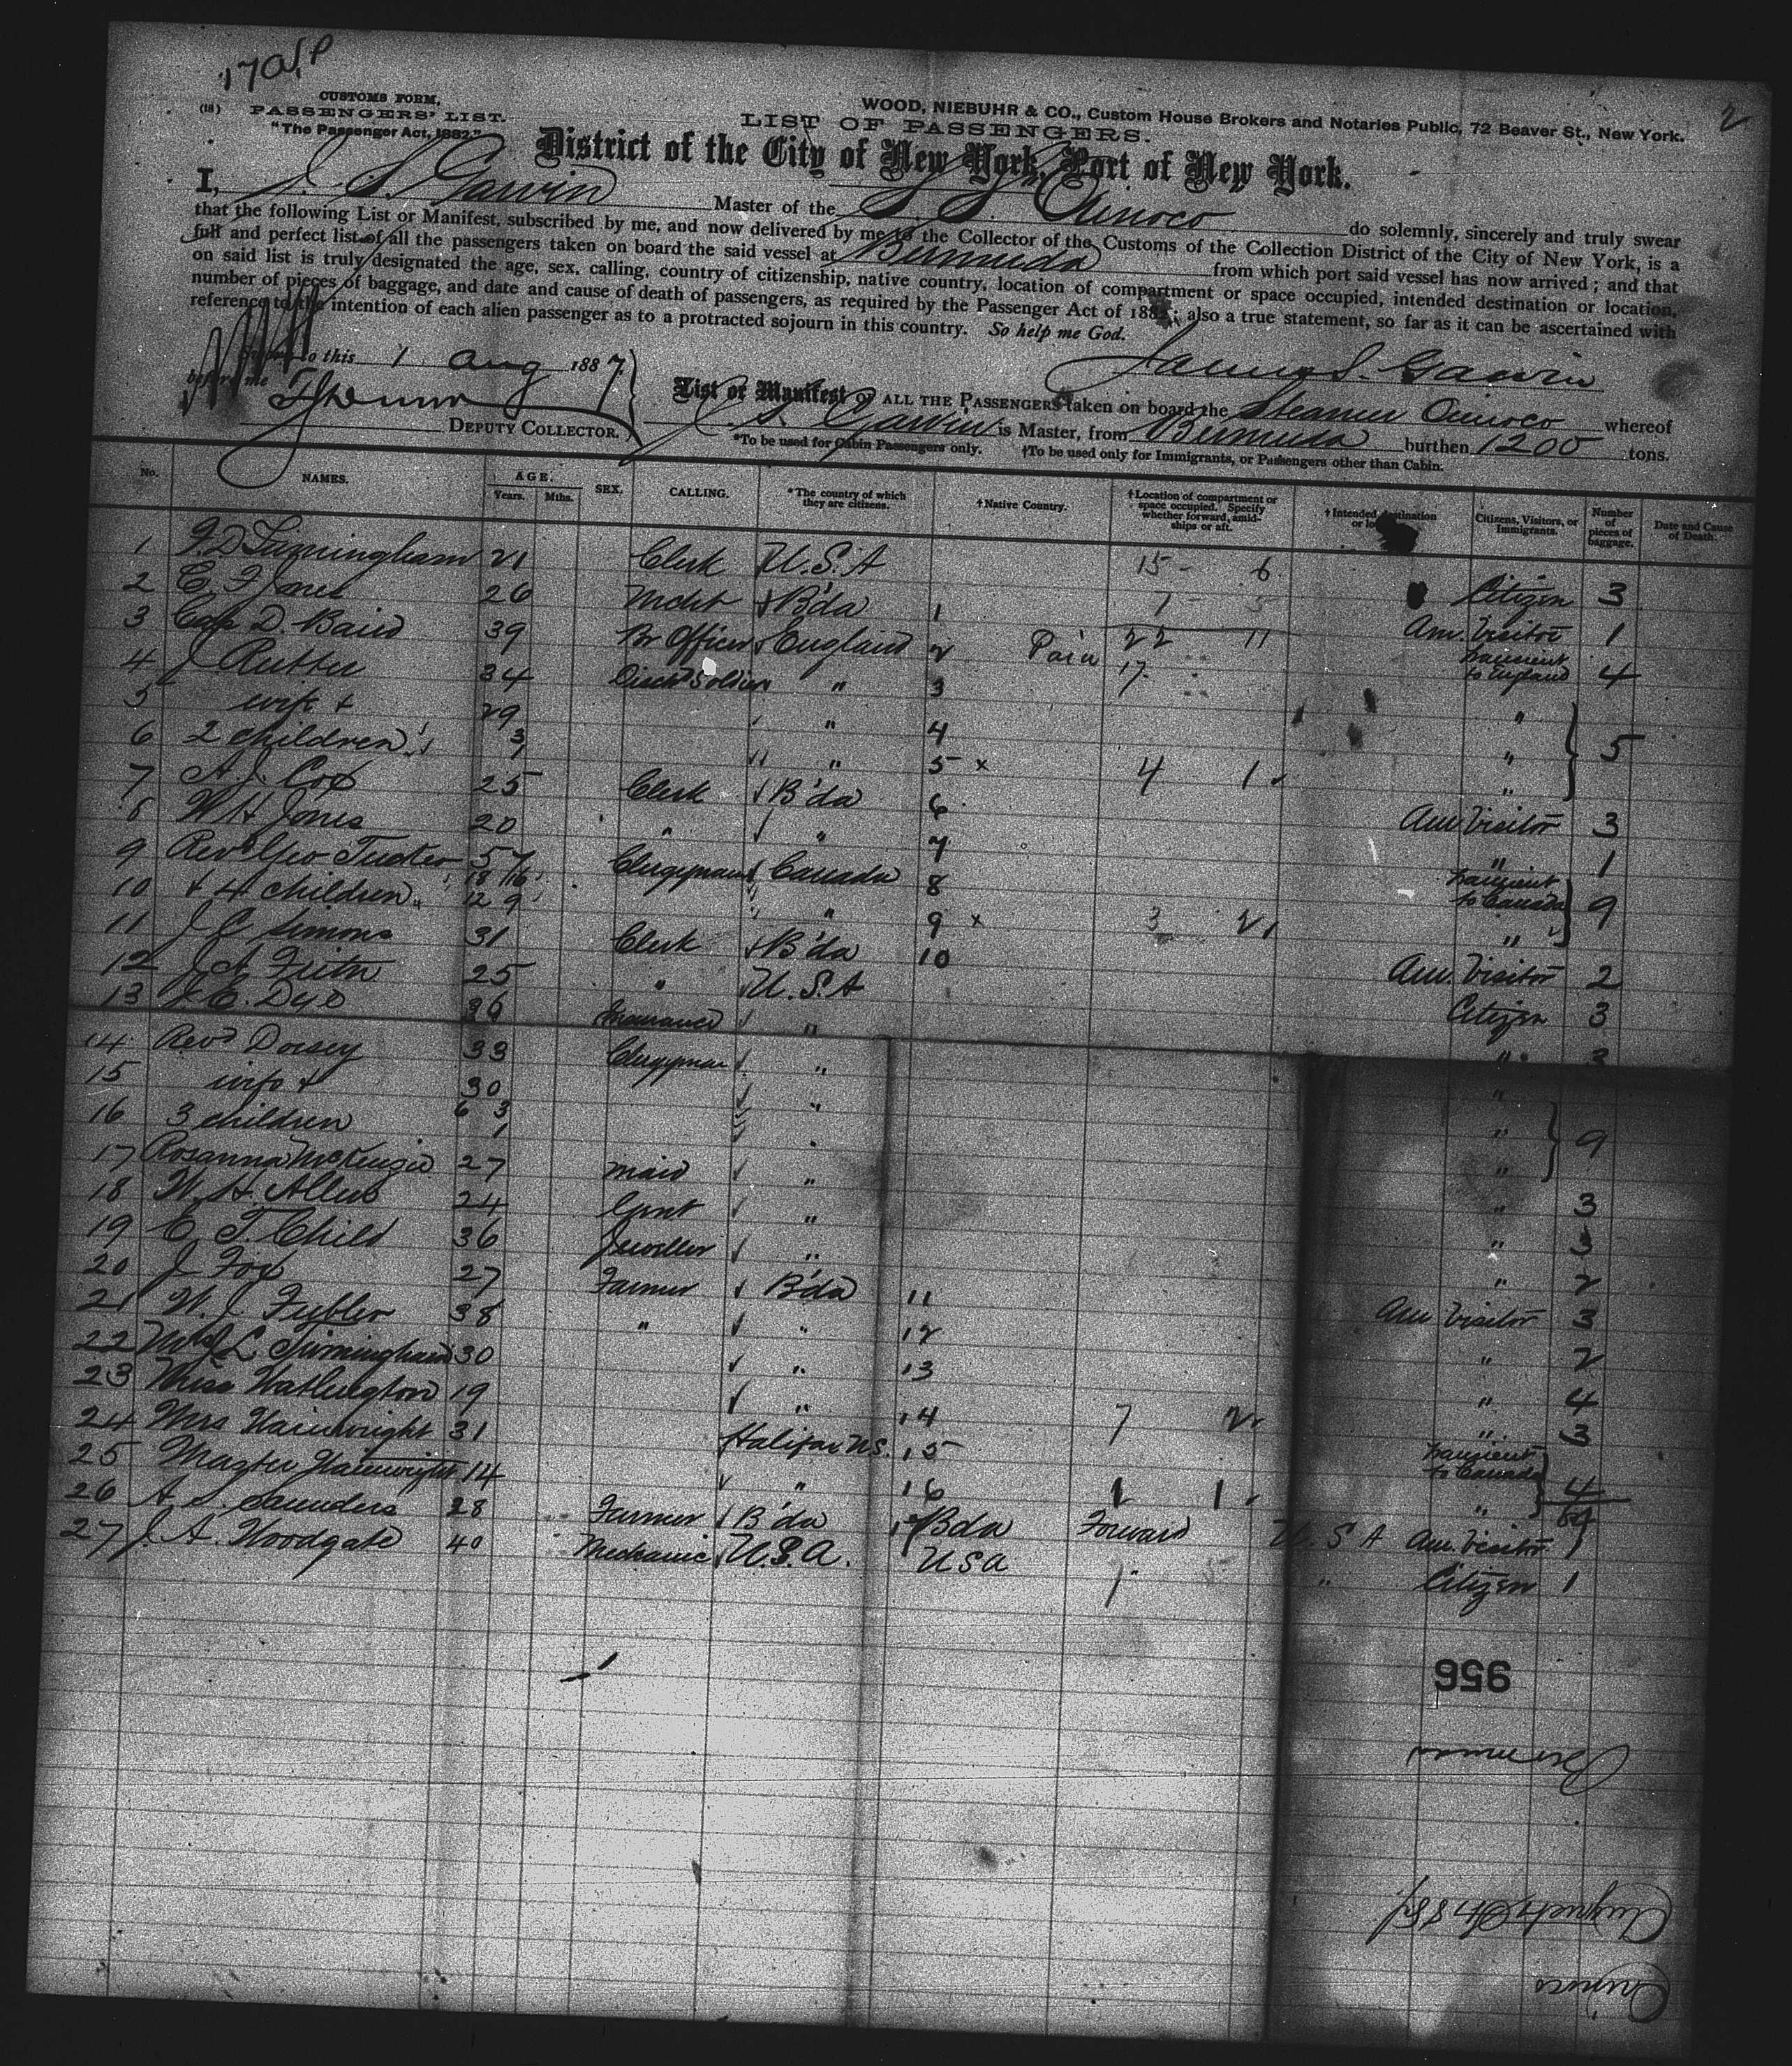 CUSTOMS FORM,
(18) PASSENGERS' LIST.
"The Passenger Act, 1882."
WOOD, NIEBUHR & CO., Custom House Brokers and Notaries Public, 72 Beaver St., New York.
2
LIST OF PASSENGERS.
District of the City of New York, Port of New York.
I, J. S. Garvin Master of the S. S. Orinoco do solemnly, sincerely and truly swear
that the following List or Manifest, subscribed by me, and now delivered by me to the Collector of the Customs of the Collection District of the City of New York, is a
full and perfect list of all the passengers taken on board the said vessel at Bermuda from which port said vessel has now arrived; and that
on said list is truly designated the age, sex, calling, country of citizenship, native country, location of compartment or space occupied, intended destination or location,
number of pieces of baggage, and date and cause of death of passengers, as required by the Passenger Act of 1882; also a true statement, so far as it can be ascertained with
reference to the intention of each alien passenger as to a protracted sojourn in this country. So help me God.
Sworn to this 1 Aug 1887
before me
James S. Garvin
DEPUTY COLLECTOR.
List or Manifest OF ALL THE PASSENGERS taken on board the Steamer Orinoco whereof
J. S. Garvin is Master, from Bermuda burthen 1200 tons.
*To be used for Cabin Passengers only. †To be used only for Immigrants, or Passengers other than Cabin.
No. NAMES. AGE. Years. Mths. SEX. CALLING. *The country of which they are citizens. †Native Country. †Location of compartment or space occupied. Specify whether forward, amidships or aft. †Intended destination Citizens, Visitors, or Immigrants. Number of pieces of baggage. Date and Cause of Death.
1 21 Clerk U.S.A 15 - 6 Citizen 3
2 E. F Jones 26 Mcht B'da 1 Am. Visitor 1
3 Cap D. Baird 39 Br Officer England 2 22 11 transient to England 4
4 J Rutter 34 Discht Soldier " 3 17 "
5 wife & 29 " 4 " 5
6 2 children 3 1 " 5 x 4 1 "
7 A. J. Cox 25 Clerk B'da 6 Am. Visitor 3
8 W H Jones 20 " " 7 " 1
9 Revd Geo Tucker 57 Clergyman Canada 8 transient to Canada 9
10 & 4 children 18 16 12 9 " 9 x 3 2 "
11 J C Simons 31 Clerk B'da 10 Am. Visitor 2
12 J A Frith 25 " U.S.A Citizen 3
13 Insurance " " 3
14 Revd Dorsey 33 Clergyman " "
15 wife & 30 " " 9
16 3 children 6 3 1 " "
17 Rosanna McKenzie 27 maid " " 3
18 W. H. 24 " " 3
19 E T. Child 36 Jeweller " " 2
20 J Fox 27 Farmer B'da 11 Am Visitor 3
21 W. J 38 " " 12 " 2
22 30 " 13 " 4
23 Miss Watlington 19 " 14 7 2 " 3
24 Mrs Wainwright 31 Halifax N.S. 15 transient to Canada 4
25 Master Wainwright 14 " 16 1 1 "
26 A. S. Saunders 28 Farmer B'da 17 Bda Forward U.S A Am. Visitor 1
27 J. A. Woodgate 40 Mechanic U.S.A. USA " Citizen 1
956
Bermuda
Orinoco